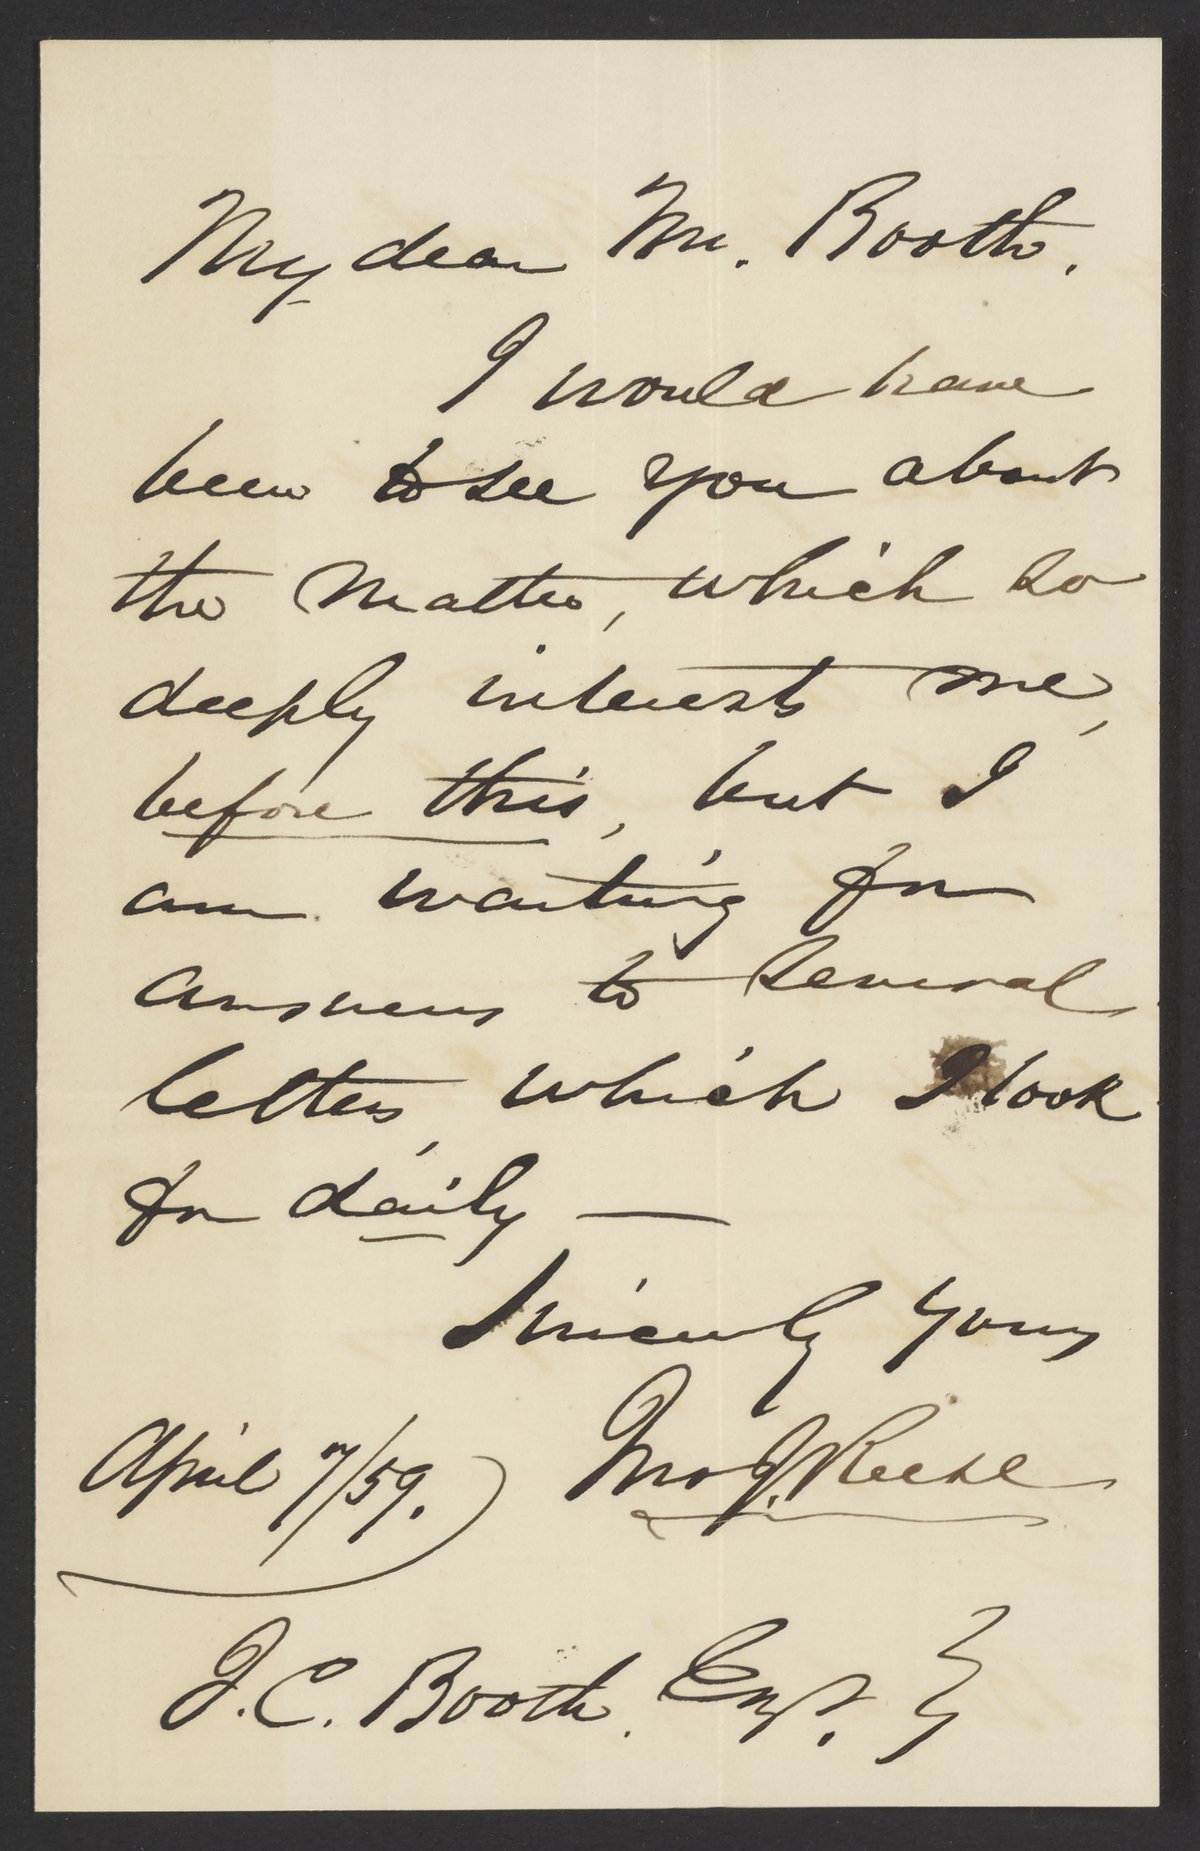 My dear Mr. Booth,
I would have
been to see you about
the matter, which so
deeply interests me,
before this, but I
am waiting for
answers to several
letters, which I look
for daily —
Sincerely yours
April 7/59. Jno J. Reese
J. C. Booth. Esqr. }